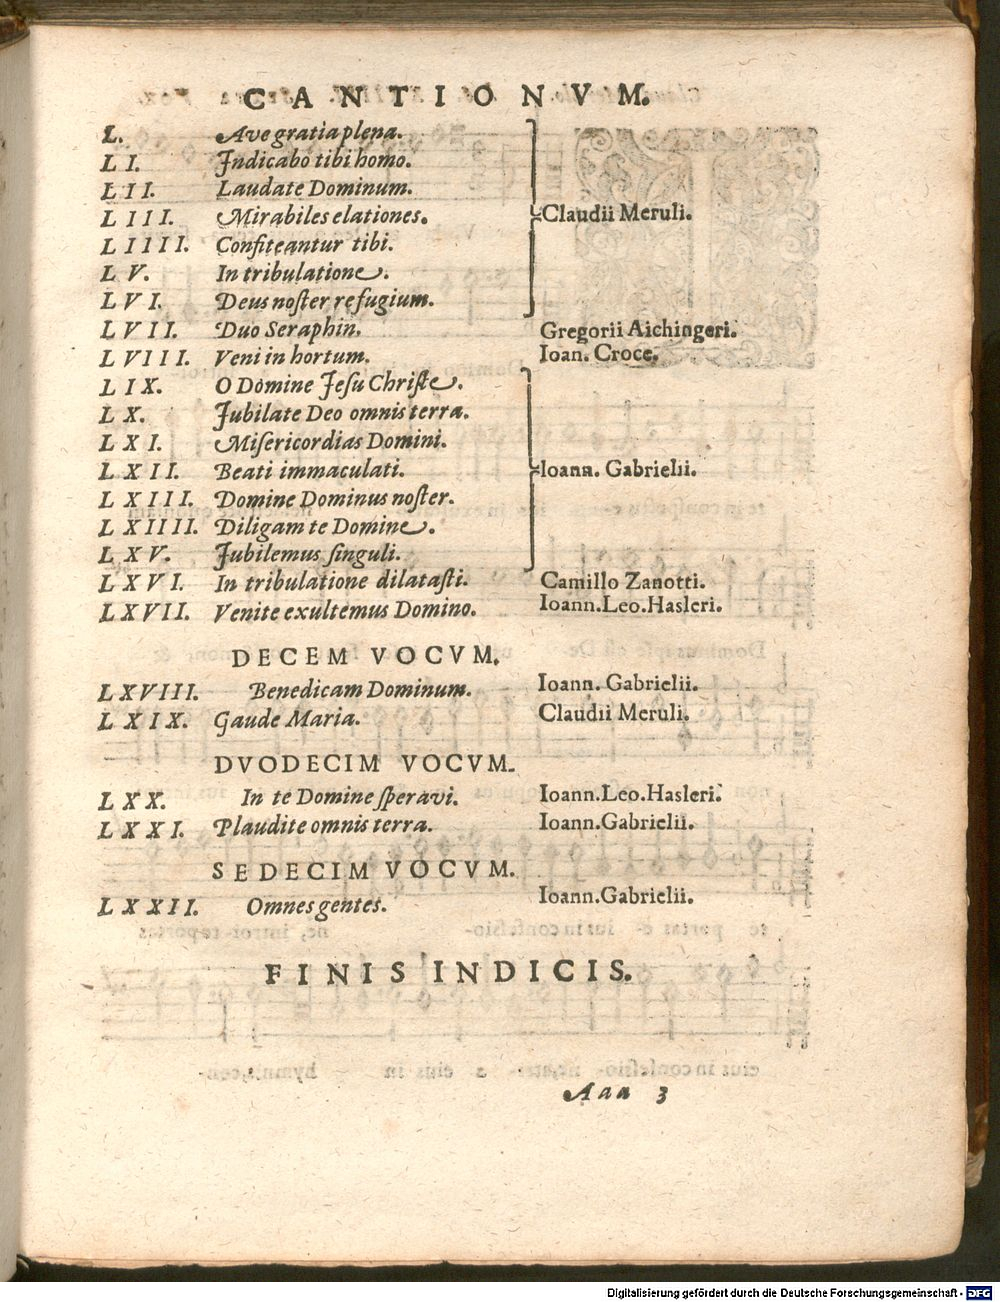 CANTIONVM.
L. Ave gratia plena.
LI. Indicabo tibi homo.
LII. Laudate Dominum.
LIII. Mirabiles elationes. Claudii Meruli.
LIIII. Confiteantur tibi.
LV. In tribulatione.
LVI. Deus noſter refugium.
LVII. Duo Seraphin. Gregorii Aichingeri.
LVIII. Veni in hortum. Ioan. Croce.
LIX. O Domine Jeſu Chriſte.
LX. Jubilate Deo omnis terra.
LXI. Miſericordias Domini.
LXII. Beati immaculati. Ioann. Gabrielii.
LXIII. Domine Dominus noſter.
LXIIII. Diligam te Domine.
LXV. Jubilemus ſinguli.
LXVI. In tribulatione dilataſti. Camillo Zanotti.
LXVII. Venite exultemus Domino. Ioann. Leo. Hasleri.
DECEM VOCVM.
LXVIII. Benedicam Dominum. Ioann. Gabrielii.
LXIX. Gaude Maria. Claudii Meruli.
DVODECIM VOCVM.
LXX. In te Domine ſperavi. Ioann. Leo. Hasleri.
LXXI. Plaudite omnis terra. Ioann. Gabrielii.
SEDECIM VOCVM.
LXXII. Omnes gentes. Ioann. Gabrielii.
FINIS INDICIS.
Aaa 3
Digitalisierung gefördert durch die Deutsche Forschungsgemeinschaft - DFG